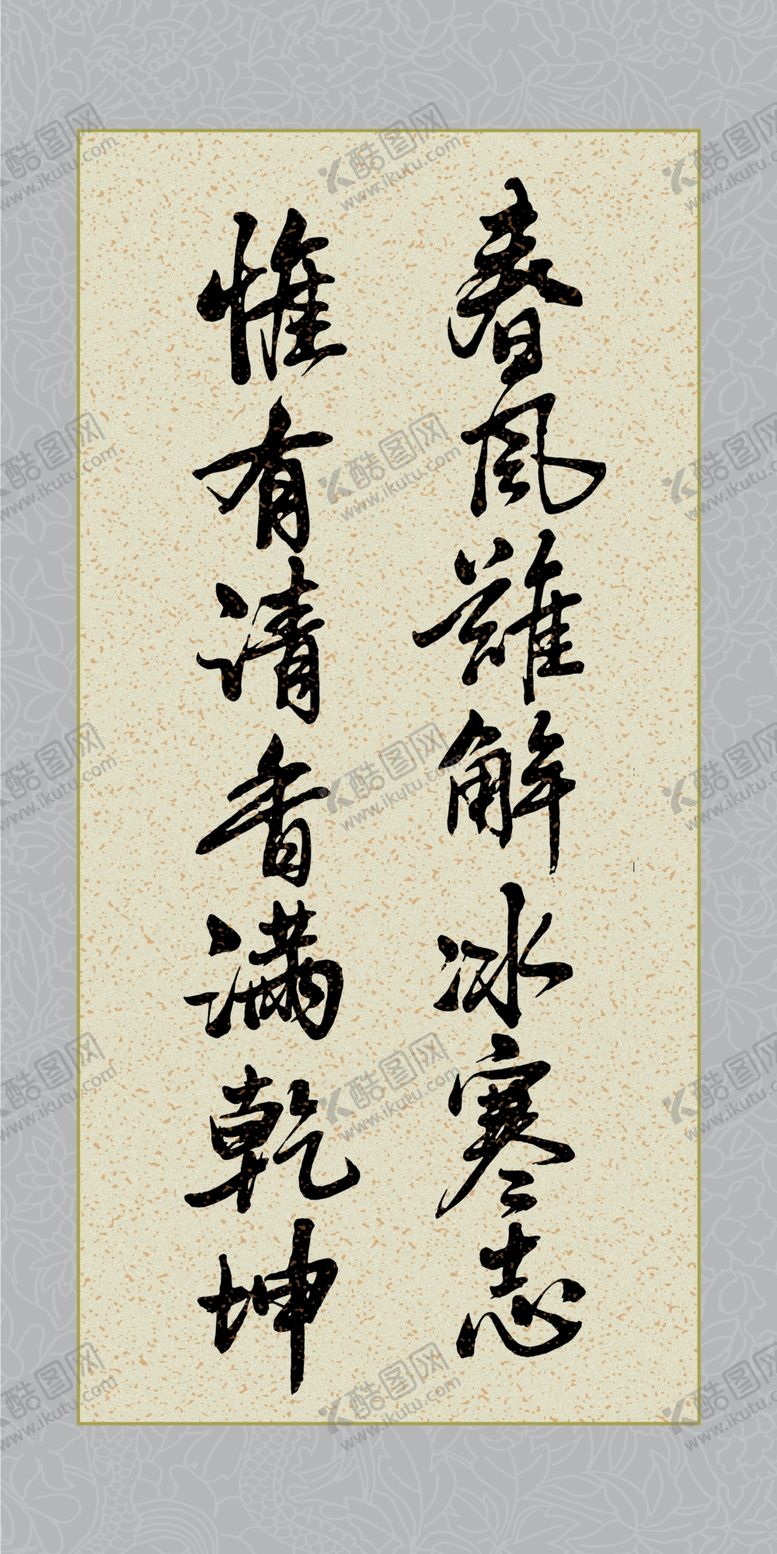 春风難解冰寒志
惟有清香满乾坤
酷图网
www.ikutu.com